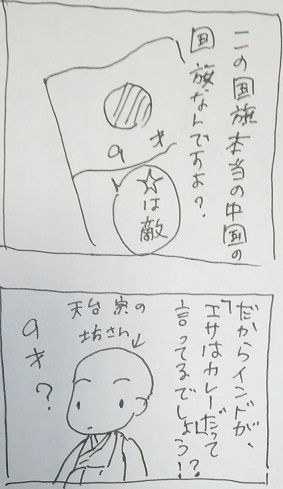 この国旗本当の中国の
国旗なんですよ?
9才
☆は敵
だからインドが、
「エサはカレー」だって
言ってるでしょう!?
天台宗の
坊さん
9才?